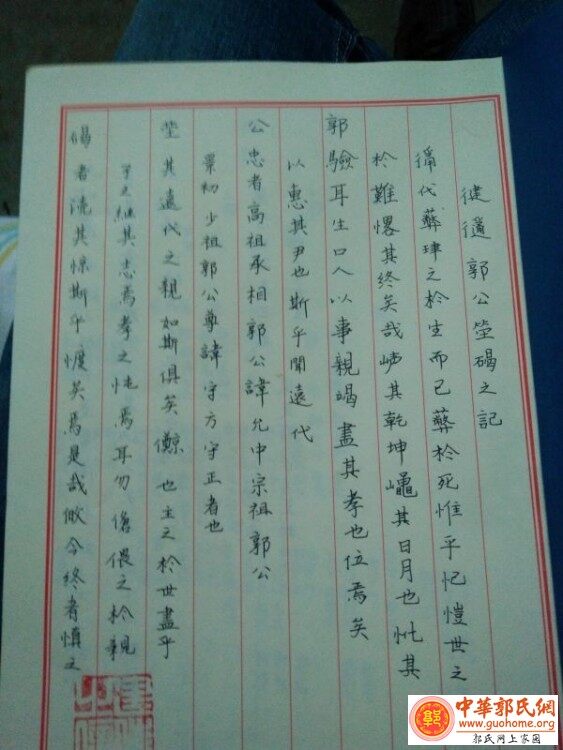 郭公塋碣之記
代彝之於生而已彝於死惟乎記世之
於難其終矣哉其乾坤其日月也其
郭驗耳生口入以事親竭盡其孝也位焉矣
以惠其尹也斯乎聞遠代
公忠者高祖承相郭公諱允中宗祖郭公
票初少祖郭公尊諱守方守正者也
塋其遠代之親如斯俱矣也主之於世盡乎
継其志焉孝之焉耳勿偎之於親
者流其惊斯乎矣焉是哉令終者慎之
中華郭氏網
www.guohome.org
郭氏网上家园